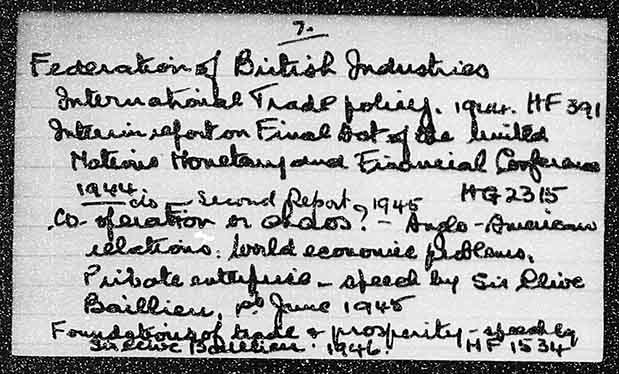 7.
Federation of British Industries
International Trade policy. 1944. HF 391
Interim report on Final Act of the United
Nations Monetary and Financial Conference
1944 do — Second Report, 1945 HG 2315
Co-operation or chaos? - Anglo-American
relations: World economic problems.
Private enterprise - speech by Sir Clive
Baillieu, 1st June 1945
Foundations of trade & prosperity - speech by
Sir Clive Baillieu. 1946. HF 1534